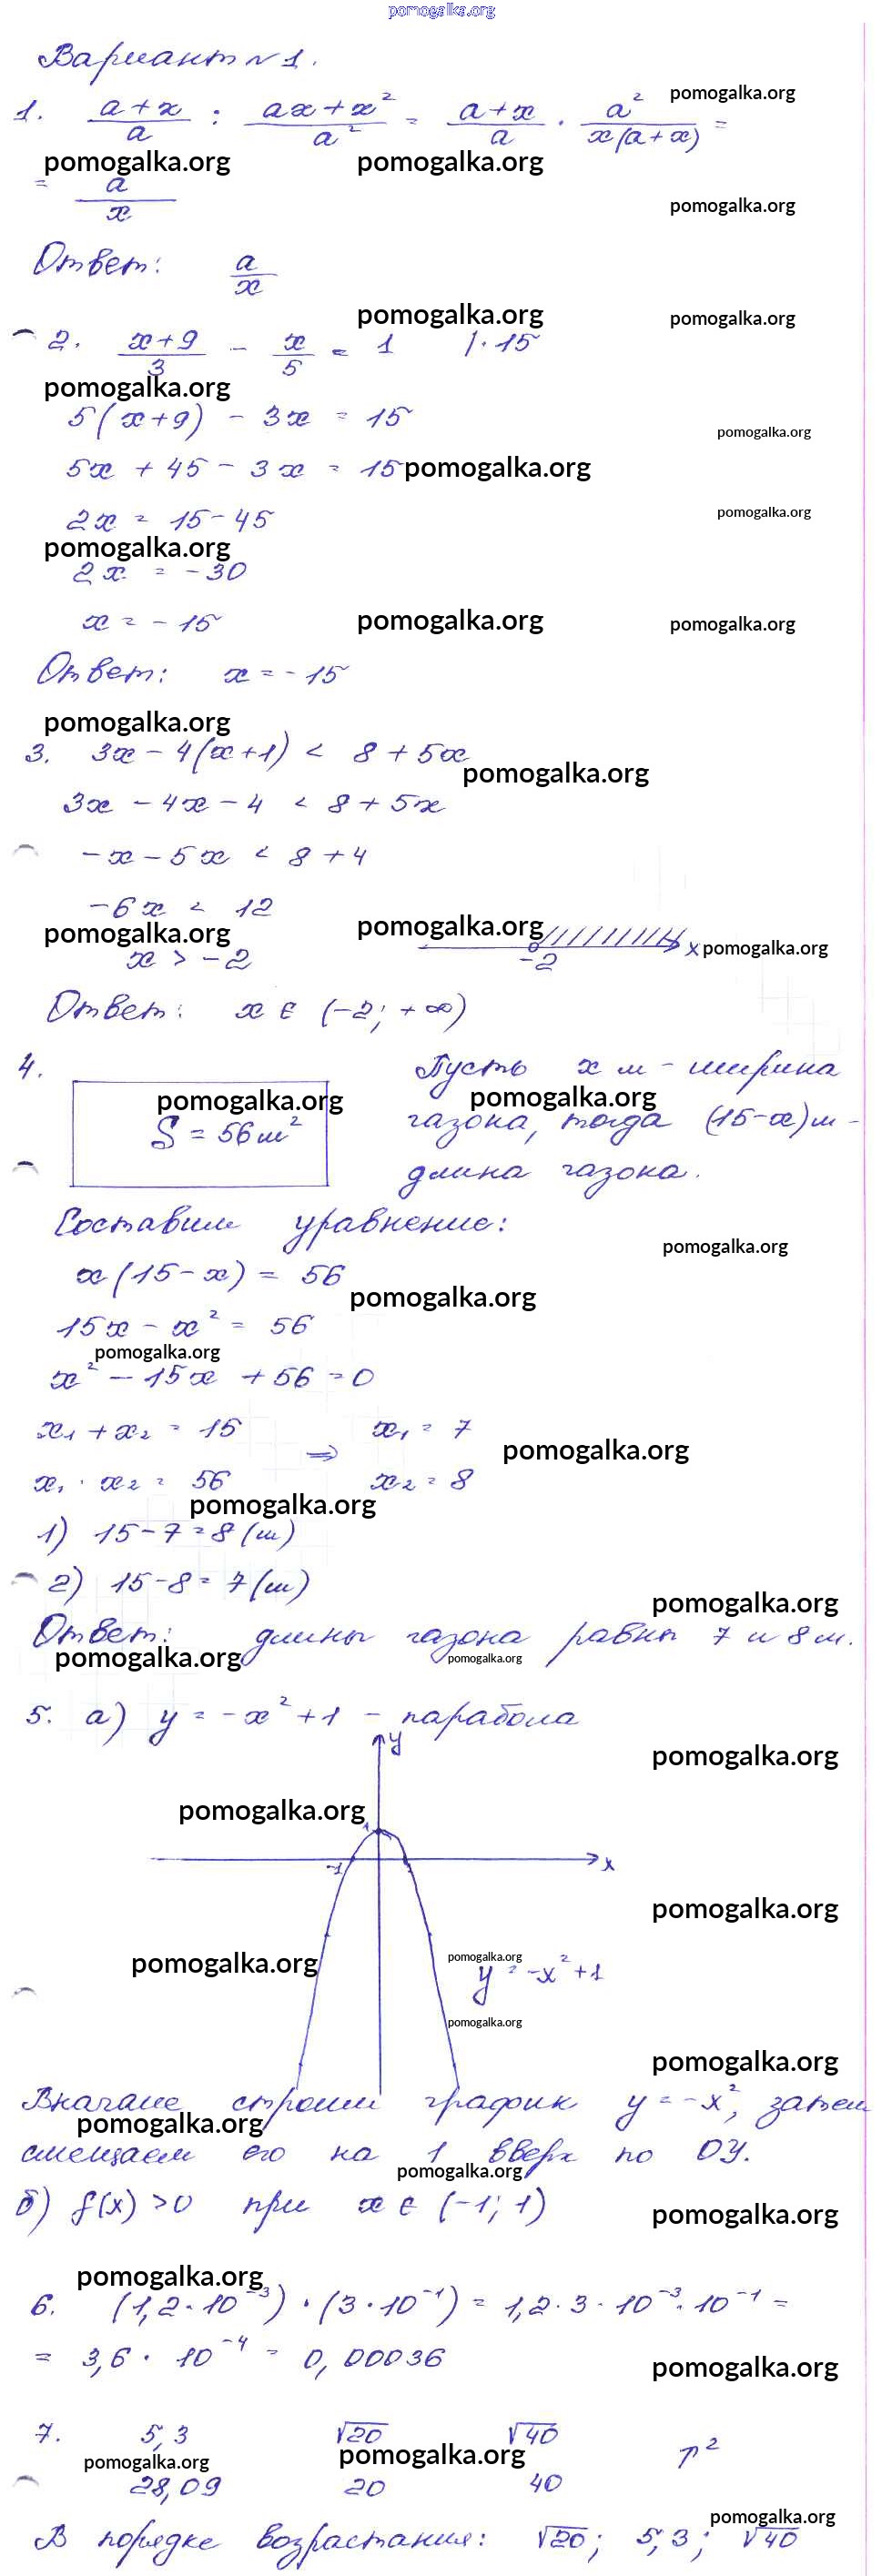 pomogalka.org
Вариант №1.
1. (a+x)/a : (ax+x²)/a² = (a+x)/a · a²/(x(a+x)) = pomogalka.org
pomogalka.org pomogalka.org
= a/x pomogalka.org
Ответ: a/x
pomogalka.org pomogalka.org
2. (x+9)/3 - x/5 = 1 |·15
pomogalka.org
5(x+9) - 3x = 15
pomogalka.org
5x + 45 - 3x = 15 pomogalka.org
2x = 15-45 pomogalka.org
pomogalka.org
2x = -30
x = -15 pomogalka.org pomogalka.org
Ответ: x = -15
pomogalka.org
3. 3x - 4(x+1) < 8 + 5x
pomogalka.org
3x - 4x - 4 < 8 + 5x
-x - 5x < 8 + 4
-6x < 12
pomogalka.org pomogalka.org x pomogalka.org
x > -2 -2
Ответ: x ∈ (-2; +∞)
4. Пусть x м - ширина
pomogalka.org pomogalka.org
S = 56 м² газона, тогда (15-x) м -
длина газона.
Составим уравнение:
pomogalka.org
x(15-x) = 56
pomogalka.org
15x - x² = 56
pomogalka.org
x² - 15x + 56 = 0
x₁ + x₂ = 15 x₁ = 7
⇒ pomogalka.org
x₁ · x₂ = 56 x₂ = 8
pomogalka.org
1) 15-7=8 (м)
2) 15-8=7 (м)
pomogalka.org
Ответ: длины газона равны 7 и 8 м.
pomogalka.org pomogalka.org
5. а) y = -x² + 1 - парабола
y
pomogalka.org
pomogalka.org
1
-1 1 x
pomogalka.org
pomogalka.org pomogalka.org
y = -x² + 1
pomogalka.org
pomogalka.org
Вначале строим график y = -x², затем
pomogalka.org
смещаем его на 1 вверх по OY.
pomogalka.org
б) f(x) > 0 при x ∈ (-1; 1)
pomogalka.org
pomogalka.org
6. (1,2·10⁻³) · (3·10⁻¹) = 1,2·3·10⁻³·10⁻¹ =
= 3,6 · 10⁻⁴ = 0,00036
pomogalka.org
7. 5,3 √20 √40 ↑2
pomogalka.org pomogalka.org
28,09 20 40
pomogalka.org
В порядке возрастания: √20; 5,3; √40